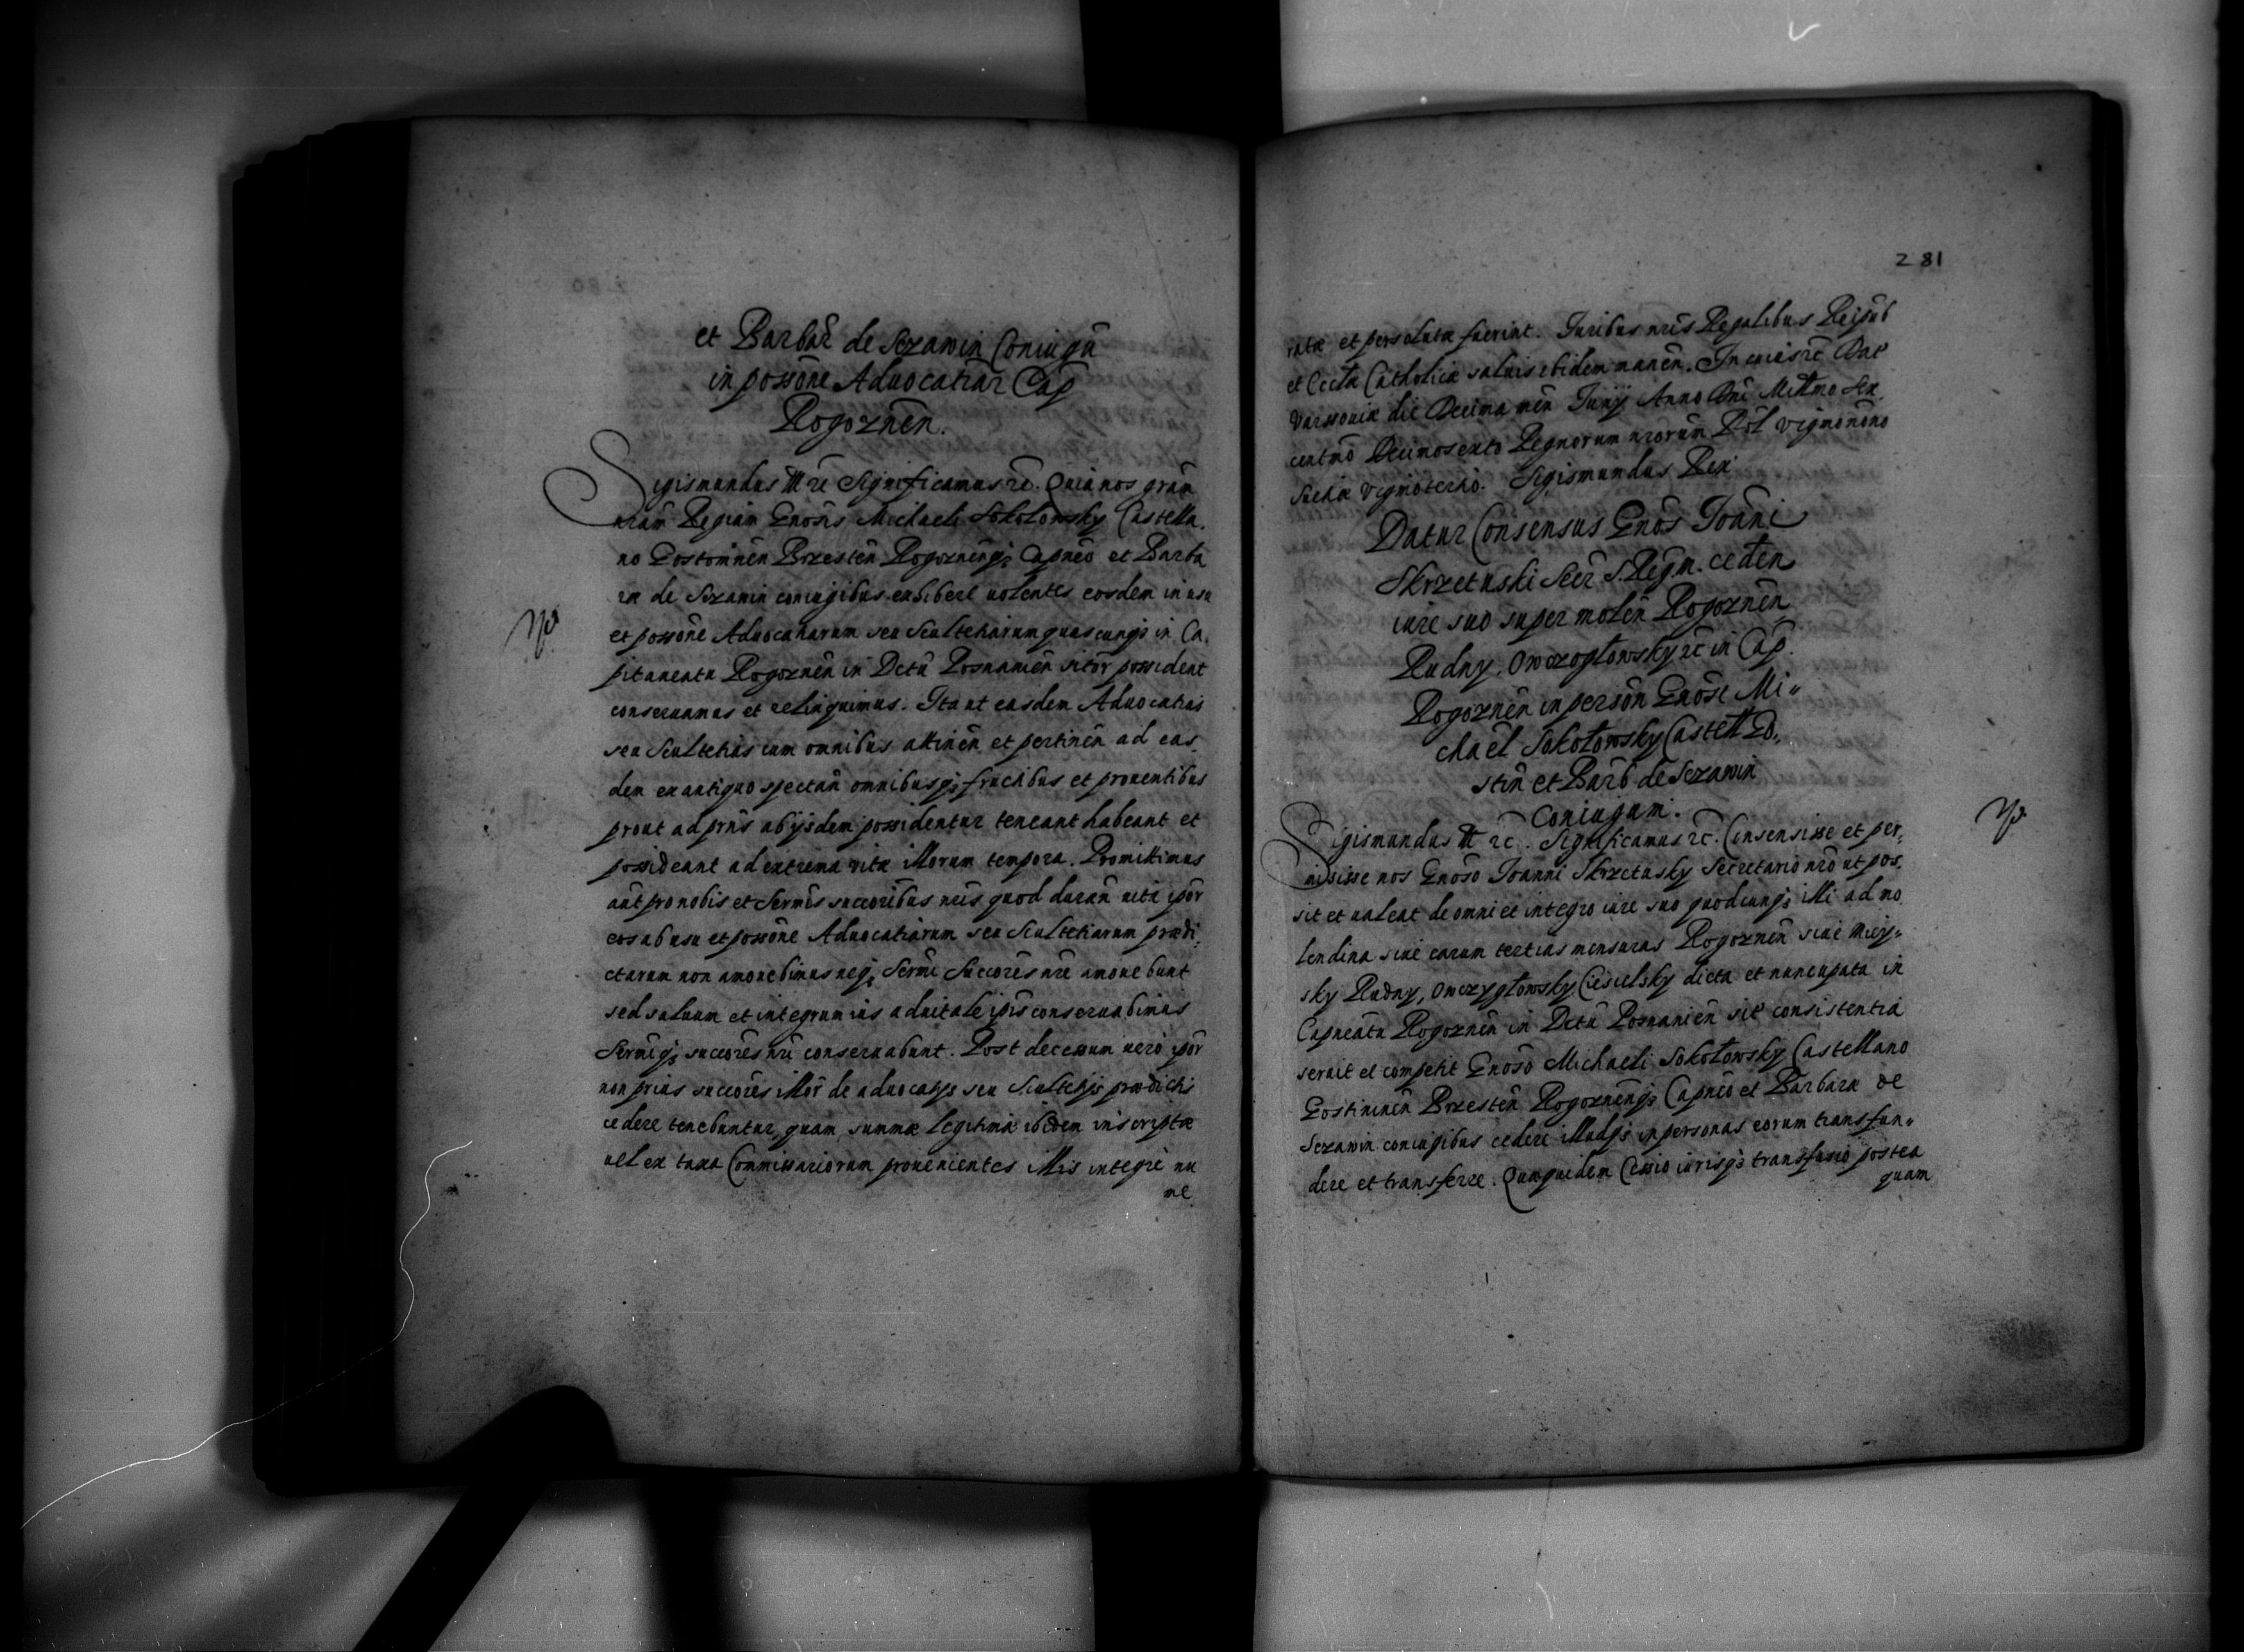 et Barbar̃ de Sczawin Coniugũ
in possone Aduocatiar̃ Cap
Rogoznen̄.
Sigismundus III rc̄ Significamus rc̄. Quia nos gr̃am
nram Regiam Gnosis Michaeli Sokołowsky Castella.
no Gostininen̄ Brzesten̄ Rogoznenq; Capneo et Barba
ræ de Sczawin coniugibus exhibere uolentes eosdem in usu
et possone Aduocatiarum seu Scultetiarum quascunq; in Ca.
pitaneatu Rogoznen̄ in Dctũ Posnanien̄ sitor̃ possident
conseruamus et relinquimus. Ita ut easdem Aduocatias
seu Scultetias cum omnibus attinen̄ et pertinen̄ ad eas,
dem ex antiquo spectan̄ omnibusq; fructibus et prouentibus
prout ad prn̄s ab ijsdem possidentur teneant habeant et
possideant ad extrema vitæ illorum tempora. Promittimus
aũt pro nobis et Sermis succoribus nris quod duran̄ uita ipor̃
eos ab usu et possone Aduocatiarum seu Scultetiarum prædi,
ctarum non amouebimus neq; Sermi Succores nri amouebunt
sed saluum et integrum ius aduitale ipis conseruabimus
Sermiq; succores nri conseruabunt. Post decessum uero ipor̃
non prius succores illor̃ de aduocatijs seu Scultetijs prædictis
cedere tenebuntur, quam summæ legitimæ ibidem inscriptæ
uel ex taxa Commissariorum prouenientes illis integre nu
me
281
ratæ et persolutæ fuerint. Iuribus nris Regalibus Reipub
et Eccl̃a Catholicæ saluis ibidem manen̄. In cuius rc̄ Dat
Varssouiæ die Decima men̄ Iunij Anno Dni Mill̃mo Sex,
centm̃o Decimosexto Regnorum nrorum Pol̃ vigmonono
Sueciæ vigmotertio. Sigismundus Rex
Datur Consensus Gnos Ioanni
Skrzetuski Secr̃ S. Reg. m. ceden̄
iure suo super molen̄ Rogoznen̄
Rudny, Owczogłowsky rc̄ in Cap.
Rogoznen̄ in person̄ Gnosi Mi"
chael Sokołowsky Castell Go,
stin̄ et Barb de Sczawin
Coniugum.
Sigismundus III rc̄. Significamus rc̄. Consensisse et per,
misisse nos Gnoso Ioanni Skrzetusky Secretario nro ut pos,
sit et ualeat de omni et integro iure suo quodcunq; illi ad mo
lendina siue earum tertias mensuras Rogoznen̄ siue Miey"
sky Rudny, Owczygłowsky Ciesielsky dicta et nuncupata in
Capneatu Rogoznen̄ in Dctũ Posnanien̄ sit consistentia
seruit et competit Gnoso Michaeli Sokołowsky Castellano
Gostininen̄ Brzesten̄ Rogoznenq; Capneo et Barbaræ de
Sczawin coniugibus cedere illudq; in personas eorum transfun"
dere et transferre. Quæquidem Cessio iurisq; transfusio postea
quam